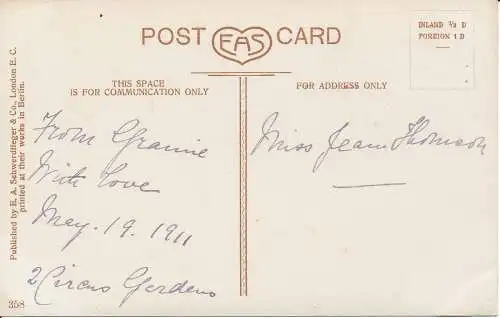 POST EAS CARD
INLAND ½ D
FOREIGN 1 D
THIS SPACE
IS FOR COMMUNICATION ONLY
FOR ADDRESS ONLY
Published by E. A. Schwerdtfeger & Co., London E. C.
printed at their works in Berlin.
From Grannie
With love
May. 19. 1911
2 Circus Gardens
Miss Jean Thomson
358